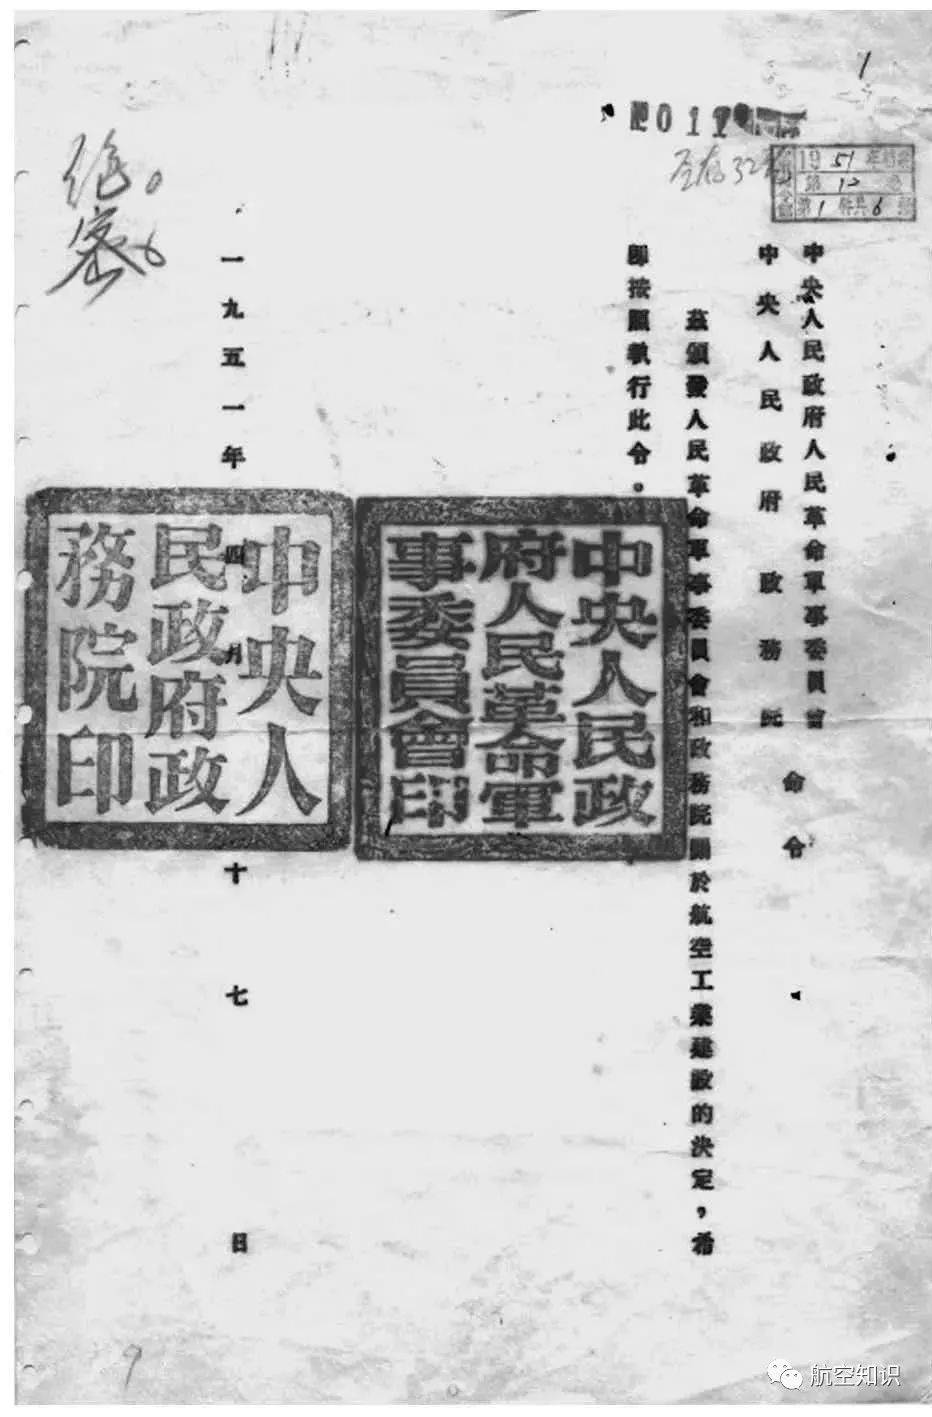 1
011
全存32卷
1951年
第12卷
第1件共6
绝密
中央人民政府人民革命軍事委員會
中央人民政府政務院
命令
茲頒發人民革命軍事委員會和政務院關於航空工業建設的決定，希
即按照執行此令。
一九五一年四月十七日
中央人民政
府人民革命軍
事委員會印
中央人
民政府政
務院印
航空知识